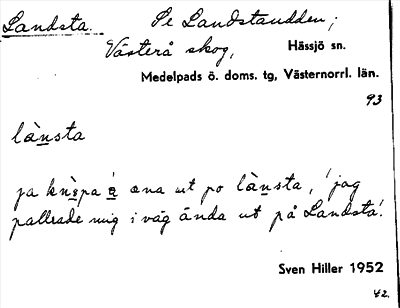 Landsta. Se Landstaudden;
Västerå skog, Hässjö sn.
Medelpads ö. doms. tg, Västernorrl. län.
93
lànsta
ja knàpa á ana ut po lànsta, 'jag
pallrade mig iväg ända ut på Landsta'.
Sven Hiller 1952
42.